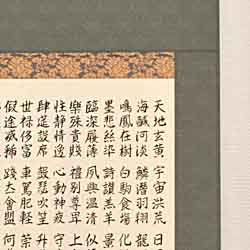 天地玄黃宇宙洪荒日
海鹹河淡鱗潛羽翔龍
鳴鳳在樹白駒食場化
墨悲絲染詩讚羔羊景
臨深履薄夙興溫凊似
樂殊貴賤禮別尊卑上
性靜情逸心動神疲守
肆筵設席鼓瑟吹笙升
世祿侈富車駕肥輕策
假途滅虢踐土會盟何